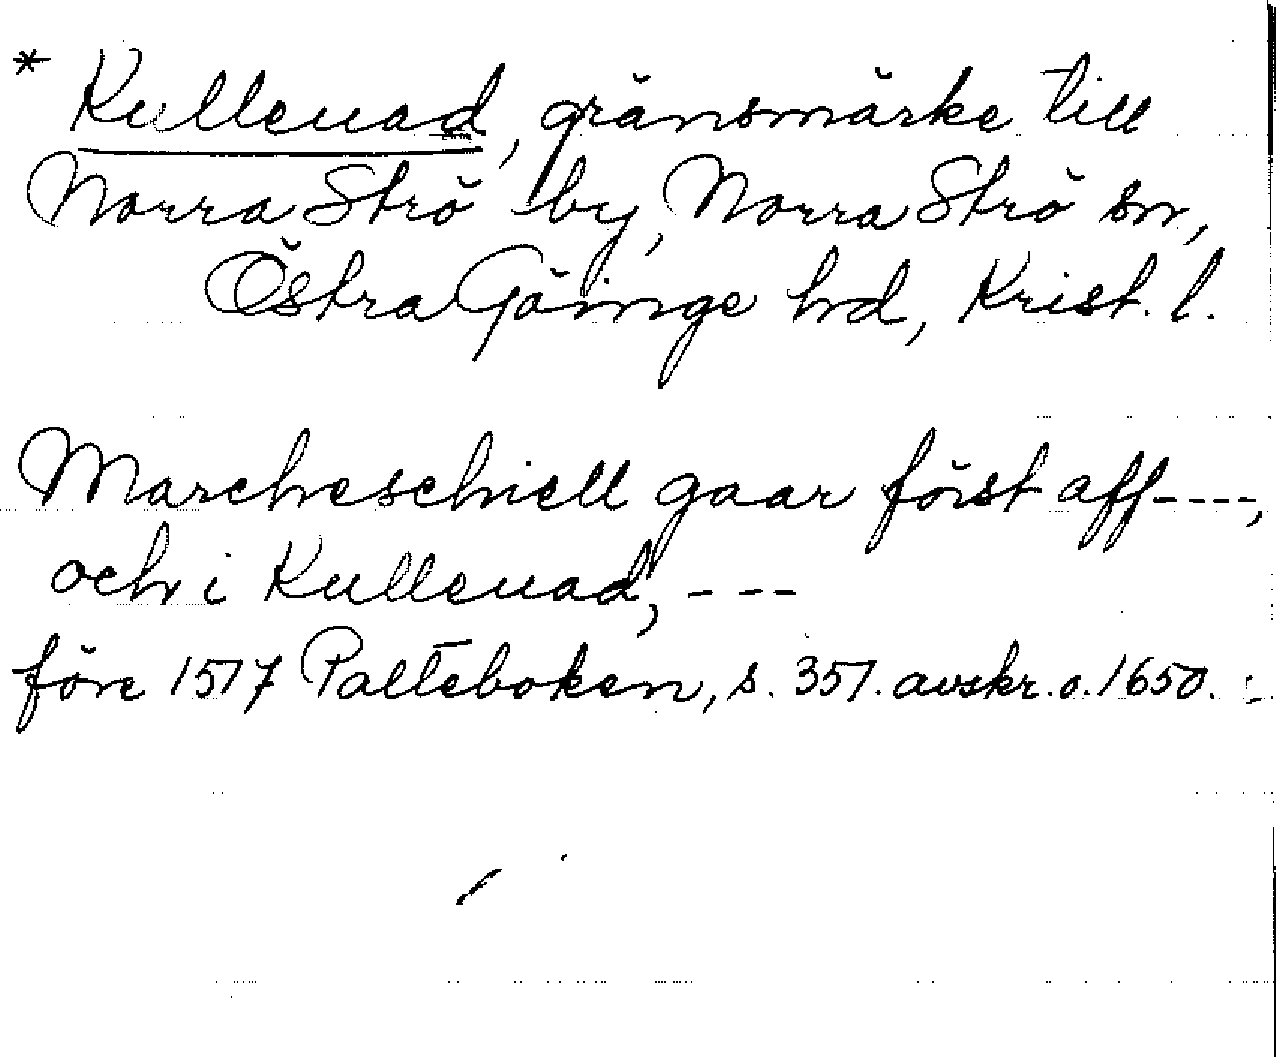 * Kulleuad, gränsmärke till
Norra Strö by, Norra Strö sn,
Östra Göinge hd, Krist. l.
Marcheschiell gaar först aff----,
och i Kulleuad, ---
före 1517 Palteboken, s. 351. avskr. o. 1650.